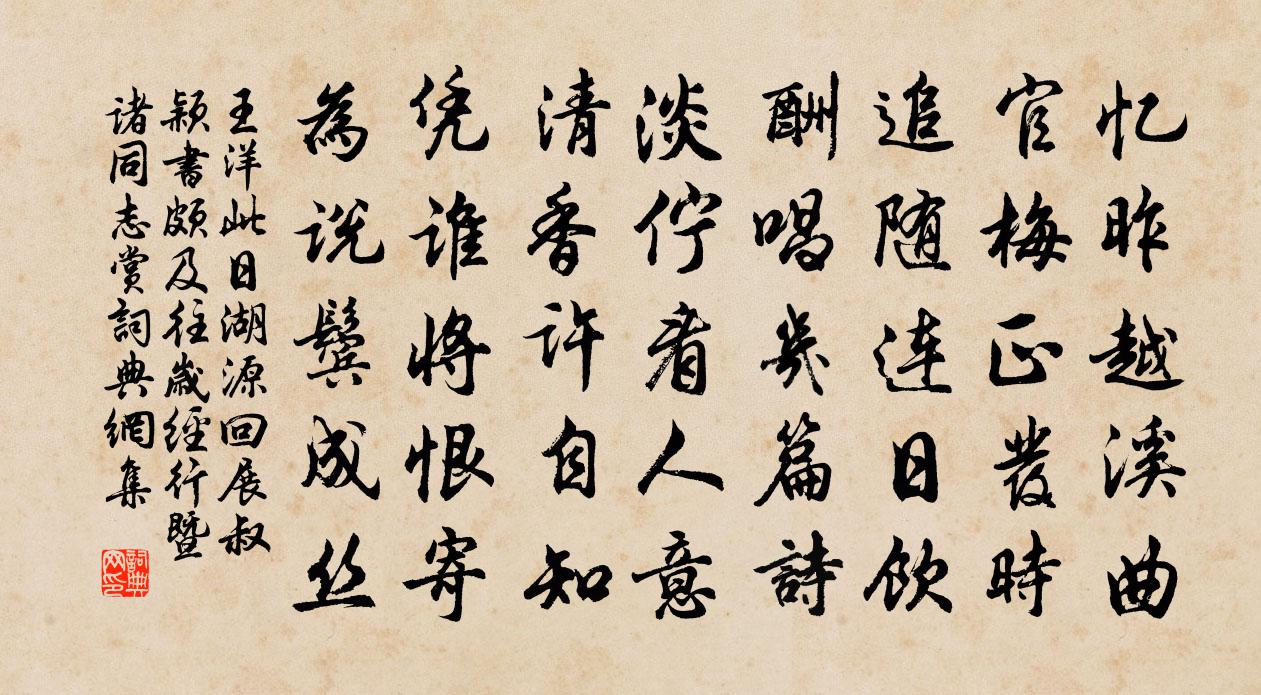 忆昨越溪曲
官梅正發時
追随连日饮
酬唱幾篇詩
淡佇看人意
清香许自知
凭谁将恨寄
為说鬓成丝
王洋此日湖源回展叔
颖書頗及往歲經行暨
诸同志赏詞典網集
詞典
网印